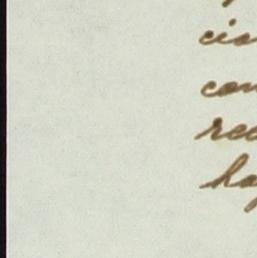 cio
con
rec
ha